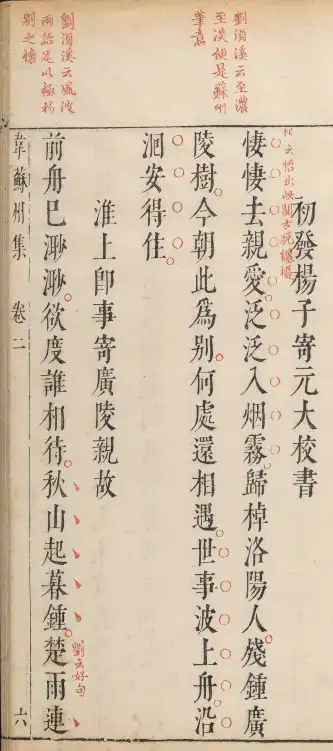 劉須溪云至濃
至淡便是蘇州
筆意
劉須溪云風波
兩語足以極楊
別之懷
初發楊子寄元大校書
悽悽去親愛泛泛入烟霧歸棹洛陽人殘鍾廣
陵樹今朝此為別何處還相遇世事波上舟沿
洄安得住
淮上卽事寄廣陵親故
前舟已渺渺欲度誰相待秋山起暮鍾楚雨連
劉云好句
韋蘇州集 卷二 六